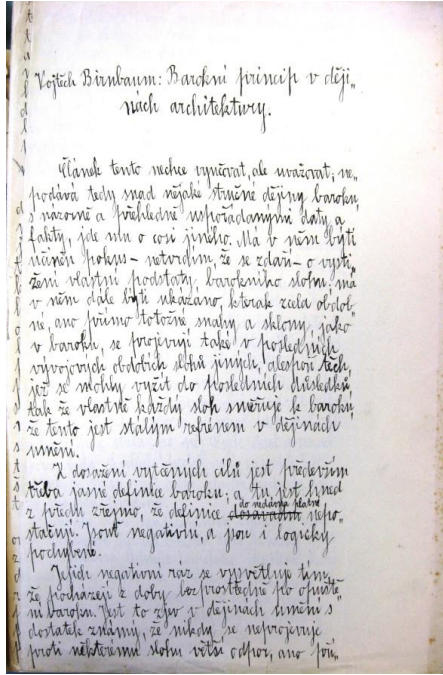 Vojtěch Birnbaum: Barokní princip v ději„
nách architektury.
Článek tento nechce vyučovat, ale uvažovat; ne„
podává tedy snad nějaké stručné dějiny baroku,
s názorně a přehledně uspořádanými daty a
fakty, jde mu o cosi jiného. Má v něm býti
učiněn pokus – netvrdím, že se zdaří – o vysti„
žení vlastní podstaty barokního slohu; má
v něm dále býti ukázáno, kterak zcela obdob„
né, ano přímo totožné snahy a sklony, jako
v baroku, se projevují také v posledních
vývojových obdobích slohů jiných, alespoň těch,
jež se mohly vyžít do posledních důsledků,
tak že vlastně každý sloh směřuje k baroku,
že tento jest stálým refrénem v dějinách
umění.
K dosažení vytčených cílů jest především
třeba jasné definice baroku; a tu jest hned
z předu zřejmo, že definice dosavadní do nedávna platné nepo„
stačují. Jsout negativní, a jsou i logicky
pochybené.
Jejich negativní ráz se vysvětluje tím,
že pocházejí z doby bezprostředně po opuště„
ní baroku. Jest to zjev v dějinách umění s
dostatek známý, že nikdy se neprojevuje
proti některému slohu větší odpor, ano pří„